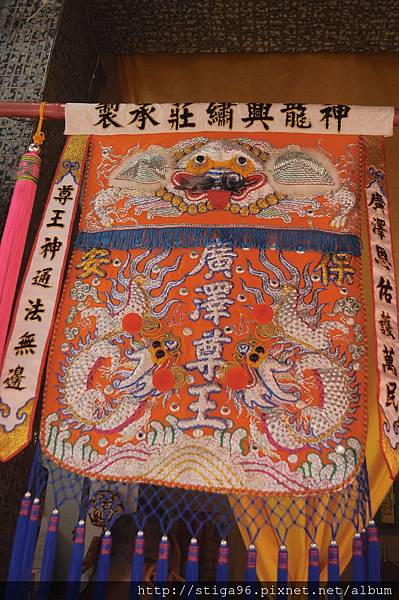 神龍興繡莊承製
廣澤恩佑護萬民
保安
廣澤尊王
尊王神通法無邊
http://stiga96.pixnet.net/album